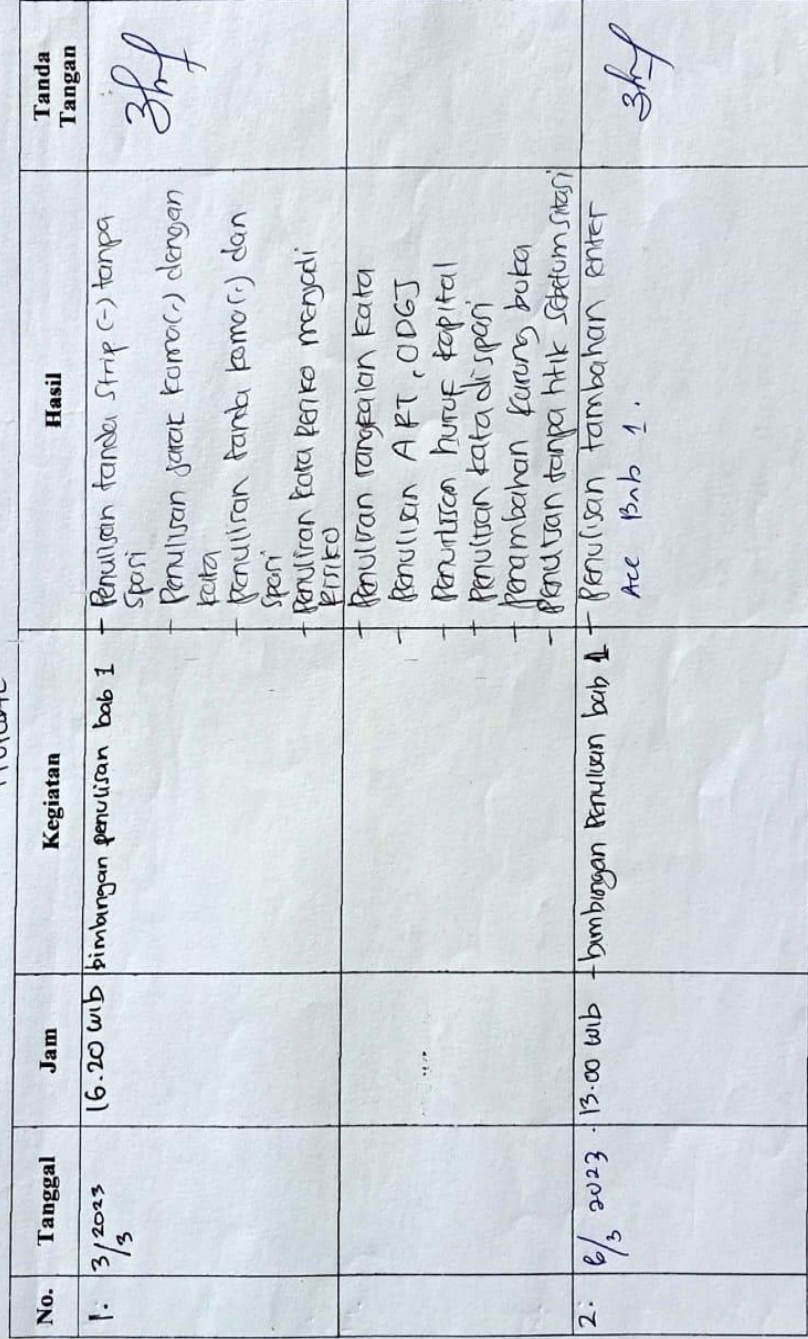 No. Tanggal Jam Kegiatan Hasil Tanda Tangan
1. 3/3 2023 16.20 wib bimbingan penulisan bab 1
- Penulisan tanda strip (-) tanpa
spasi
- Penulisan jarak koma(,) dengan
kata
- Penulisan tanda koma(,) dan
spasi
- Penulisan kata resiko menjadi
risiko
- Penulisan rangkaian kata
- Penulisan ART, ODGJ
- Penulisan huruf kapital
- Penulisan kata di spasi
- Penambahan kurung buka
- Penulisan tanpa titik sebelum sitasi
2. 6/3 2023 . 13.00 wib - bimbingan Penulisan bab 1
- Penulisan tambahan enter
Acc Bab 1.